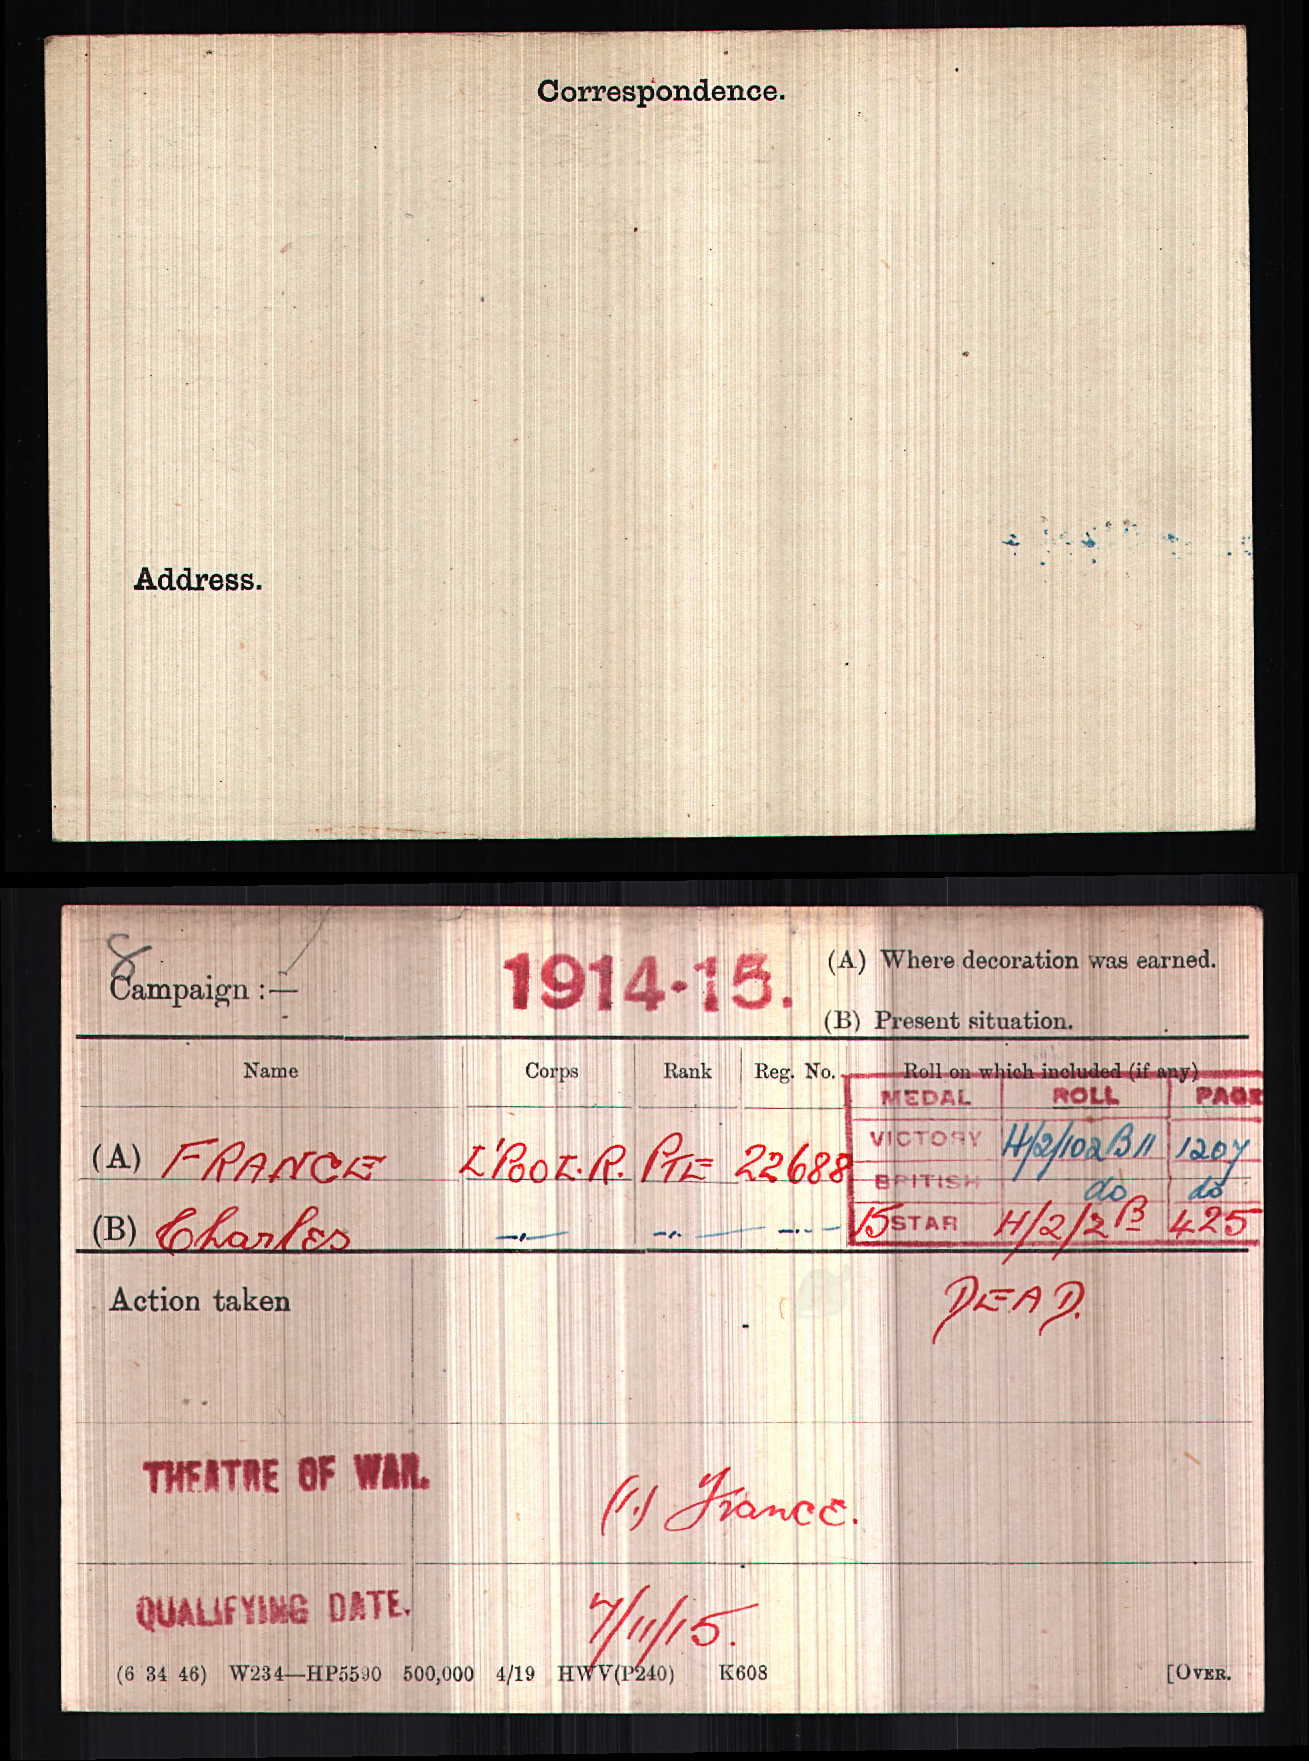 Correspondence.
Address.
8
Campaign :—
1914-15.
(A) Where decoration was earned.
(B) Present situation.
Name Corps Rank Reg. No. Roll on which included (if any)
MEDAL ROLL PAGE
(A) FRANCE L'POOL.R. PTE 22688 VICTORY H/2/102B11 1207
BRITISH do do
(B) Charles -,,- -,,- -,,- 15 STAR H/2/2B 425
Action taken DEAD.
THEATRE OF WAR. (1.) France.
QUALIFYING DATE. 7/11/15.
(6 34 46) W234—HP5590 500,000 4/19 HWV(P240) K608 [OVER.